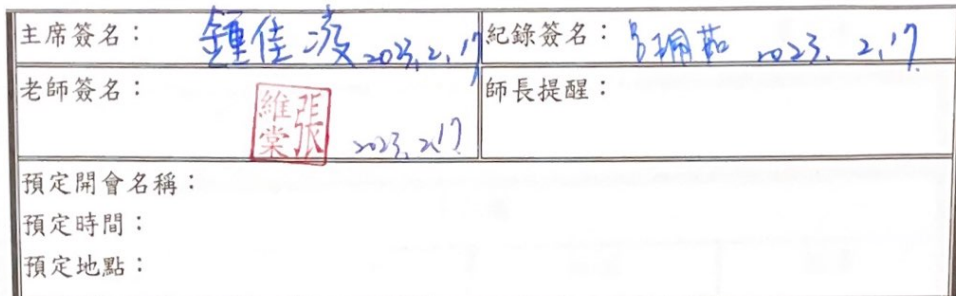 主席簽名： 鍾佳凌 2023.2.17
紀錄簽名： 呂珮茹 2023.2.17
老師簽名： 張維棠 2023.2.17
師長提醒：
預定開會名稱：
預定時間：
預定地點：